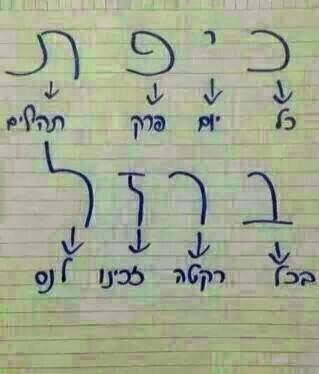 כ י פ ת
כל יום פרק תהילים
ב ר ז ל
בכל רקטה זכינו לנס